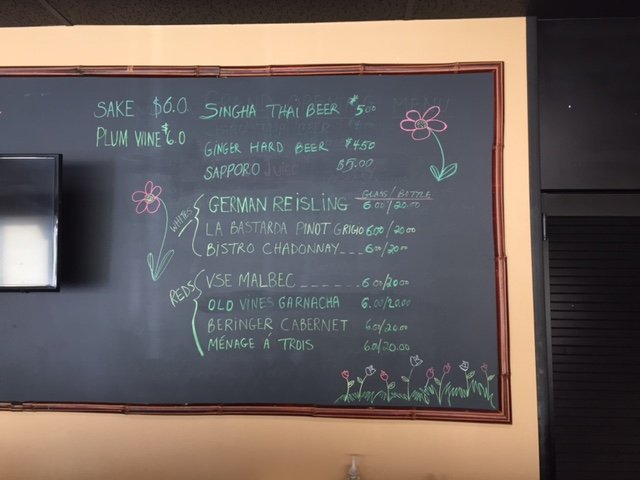 SAKE $6.0
PLUM WINE $6.0
SINGHA THAI BEER $5.00
GINGER HARD BEER $4.50
SAPPORO $5.00
GLASS/BOTTLE
WHITES
GERMAN REISLING 6.00/20.00
LA BASTARDA PINOT GRIGIO 6.00/20.00
BISTRO CHADONNAY___ 6.00/20.00
REDS
VSE MALBEC _______ 6.00/20.00
OLD VINES GARNACHA 6.00/20.00
BERINGER CABERNET 6.0/20.00
MÉNAGE Á TROIS 6.0/20.00